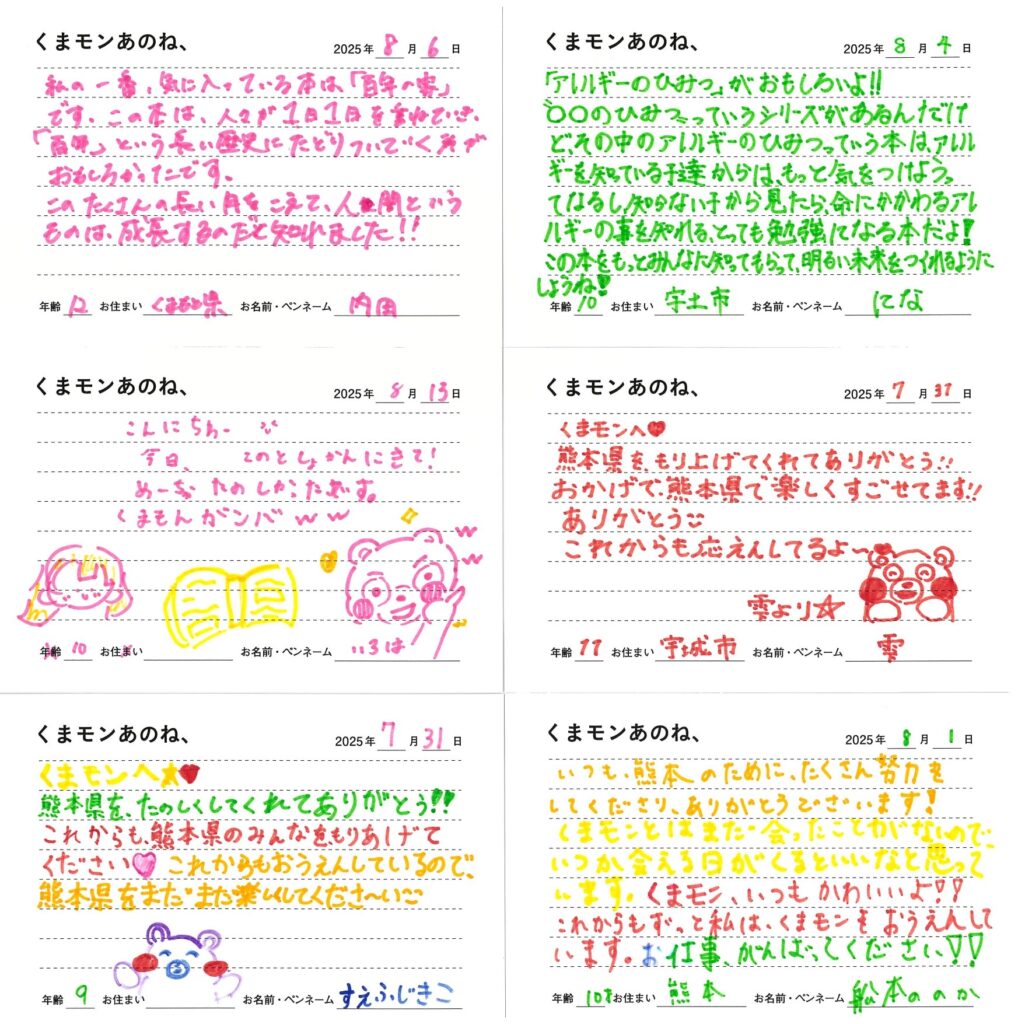 くまモンあのね、
2025年 8 月 6 日
私の一番、気に入っている本は、「百年の家」
です。この本は、人々が1日1日を重ねていき、
「百年」という長い歴史にたどりついていく所が
おもしろかったです。
このたくさんの長い月をこえて、人間という
ものは、成長するのだと知れました!!
年齢 12 お住まい くまもと県 お名前・ペンネーム 内田
くまモンあのね、
2025年 8 月 4 日
「アレルギーのひみつ」がおもしろいよ!!
〇〇のひみつっていうシリーズがあるんだけ
ど、その中のアレルギーのひみつっていう本は、アレル
ギーを知っている子達からは、もっと気をつけようっ
てなるし、知らない子から見たら、命にかかわるアレ
ルギーの事を知れる、とっても勉強になる本だよ!
この本をもっとみんなに知ってもらって、明るい未来をつくれるように
しようね!
年齢 10 お住まい 宇土市 お名前・ペンネーム にな
くまモンあのね、
2025年 8 月 13 日
こんにちわー
今日、このとしょかんにきて!
めーっちゃたのしかったです。
くまもんガンバww
年齢 10 お住まい お名前・ペンネーム いろは
くまモンあのね、
2025年 7 月 31 日
くまモンへ♥
熊本県を、もり上げてくれてありがとう!!
おかげで、熊本県で楽しくすごせてます!!
ありがとう
これからも応えんしてるよ〜
雫より☆
年齢 11 お住まい 宇城市 お名前・ペンネーム 雫
くまモンあのね、
2025年 7 月 31 日
くまモンへ♥
熊本県を、たのしくしてくれてありがとう!!
これからも、熊本県のみんなをもりあげて
ください♡ これからもおうえんしているので、
熊本県をまだまだ楽しくしてくださ〜い
年齢 9 お住まい お名前・ペンネーム すえふじきこ
くまモンあのね、
2025年 8 月 1 日
いつも、熊本のために、たくさん努力を
してくださり、ありがとうございます!
くまモンとはまだ会ったことがないので、
いつか会える日がくるといいなと思って
います。くまモン、いつもかわいいよ!!
これからもずっと私は、くまモンをおうえんして
います。お仕事、がんばってください!!
年齢 10才 お住まい 熊本 お名前・ペンネーム 船本ののか